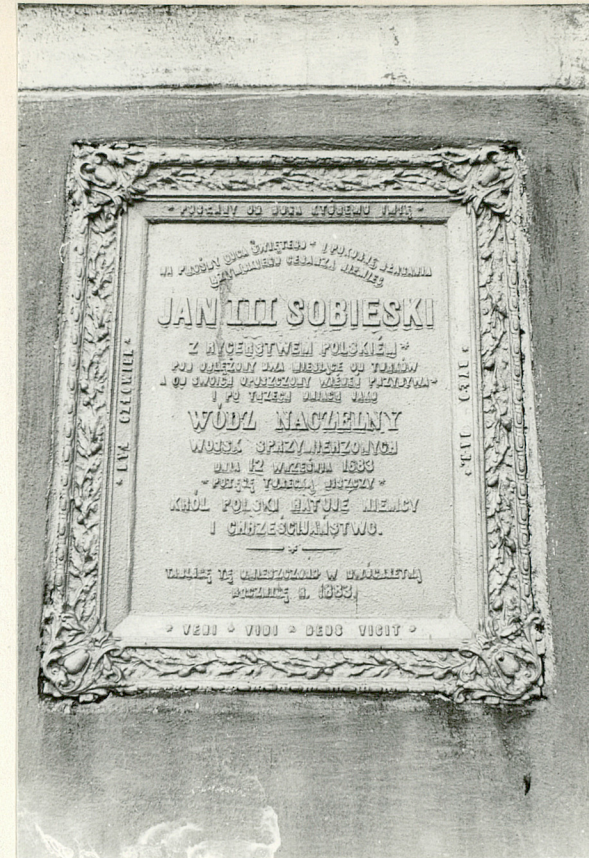 * POSŁANY OD BOGA KTÓREMU IMIĘ *
NA PROŚBY OJCA ŚWIĘTEGO * I POKORNE BŁAGANIA
RZYMSKIEGO CESARZA NIEMIEC
JAN III SOBIESKI
Z RYCERSTWEM POLSKIÉM *
POD OBLĘŻONY DWA MIESIĄCE OD TURKÓW
A OD SWOICH OPUSZCZONY WIEDEŃ PRZYBYWA *
I PO TRZECH DNIACH JAKO
WÓDZ NACZELNY
WOJSK SPRZYMIERZONYCH
DNIA 12 WRZEŚNIA 1683
* POTĘGĘ TURECKĄ NISZCZY *
KRÓL POLSKI RATUJE NIEMCY
I CHRZEŚCIJAŃSTWO.
TABLICĘ TĘ UMIESZCZONO W DWÓCHLETNĄ
ROCZNICĘ R. 1883.
* VENI * VIDI * DEUS VICIT *
* JAN
III. *